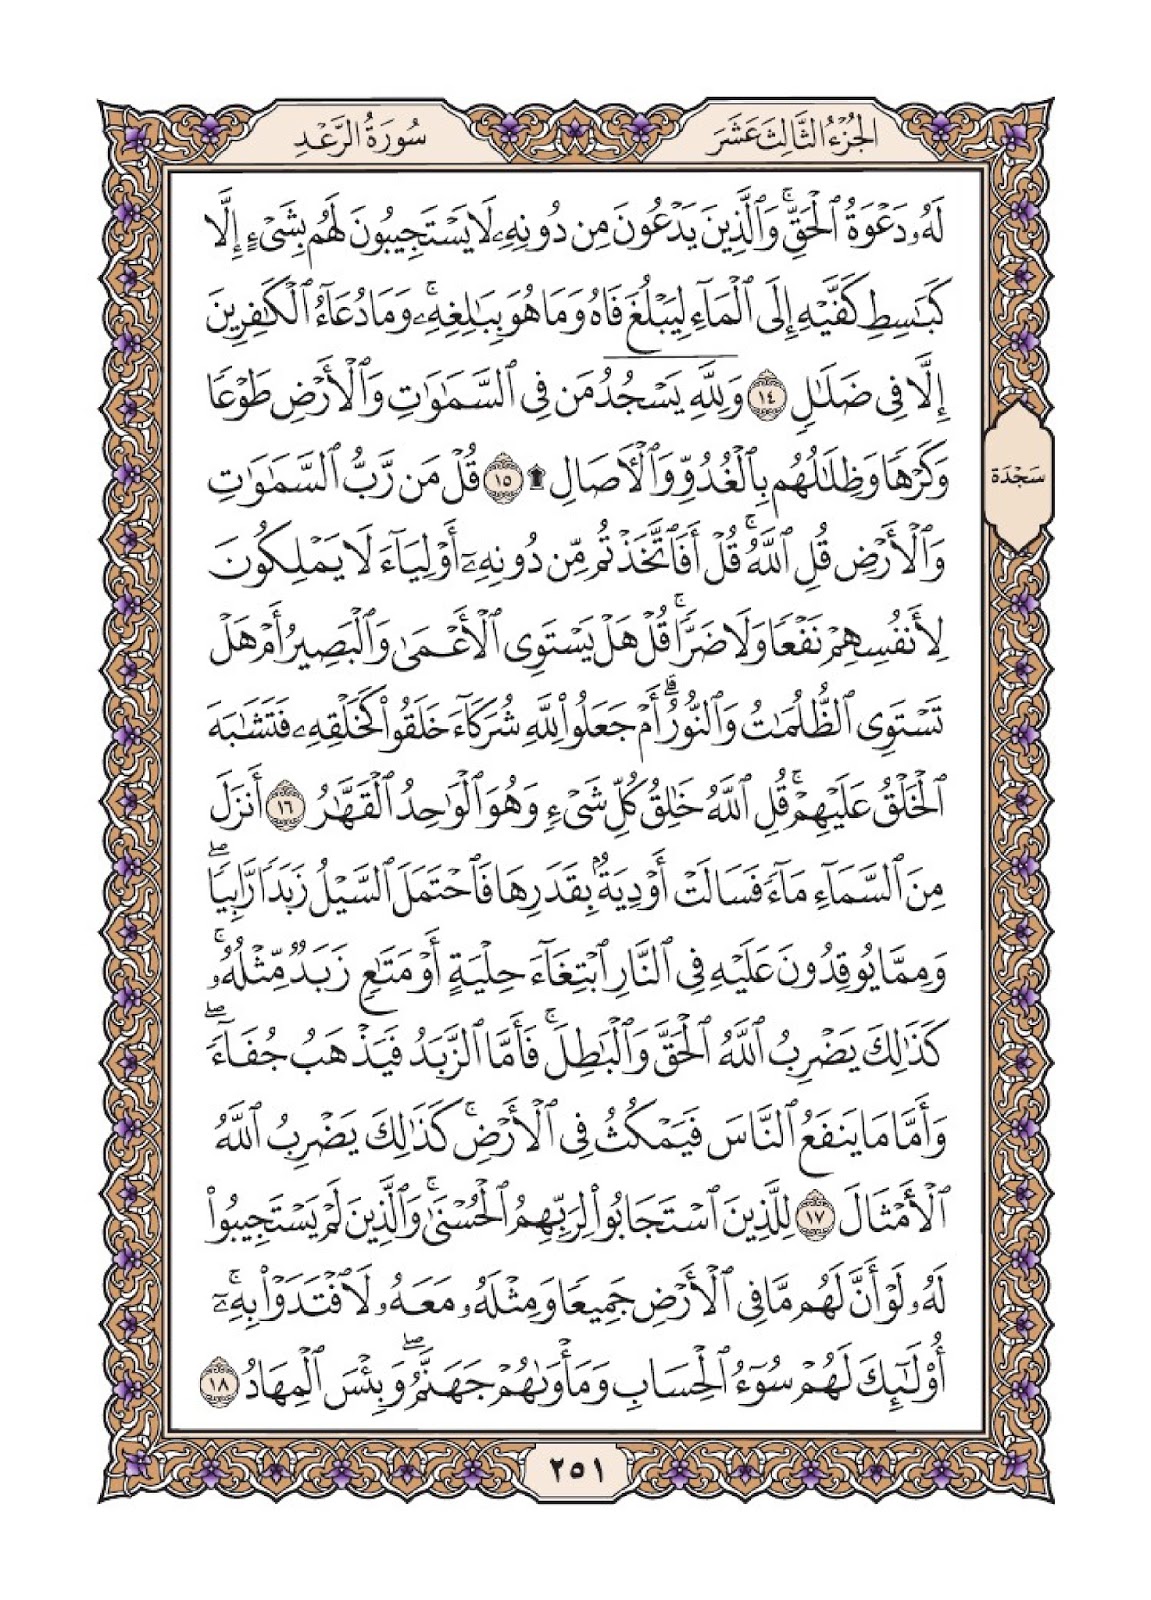 الجزء الثالث عشر
سورة الرعد
لَهُۥ دَعۡوَةُ ٱلۡحَقِّۚ وَٱلَّذِينَ يَدۡعُونَ مِن دُونِهِۦ لَا يَسۡتَجِيبُونَ لَهُم بِشَيۡءٍ إِلَّا
كَبَٰسِطِ كَفَّيۡهِ إِلَى ٱلۡمَآءِ لِيَبۡلُغَ فَاهُ وَمَا هُوَ بِبَٰلِغِهِۦۚ وَمَا دُعَآءُ ٱلۡكَٰفِرِينَ
إِلَّا فِي ضَلَٰلٖ ١٤ وَلِلَّهِۤ يَسۡجُدُۤ مَن فِي ٱلسَّمَٰوَٰتِ وَٱلۡأَرۡضِ طَوۡعٗا
وَكَرۡهٗا وَظِلَٰلُهُم بِٱلۡغُدُوِّ وَٱلۡأٓصَالِ ۩ ١٥ قُلۡ مَن رَّبُّ ٱلسَّمَٰوَٰتِ
وَٱلۡأَرۡضِ قُلِ ٱللَّهُۚ قُلۡ أَفَٱتَّخَذۡتُم مِّن دُونِهِۦٓ أَوۡلِيَآءَ لَا يَمۡلِكُونَ
لِأَنفُسِهِمۡ نَفۡعٗا وَلَا ضَرّٗاۚ قُلۡ هَلۡ يَسۡتَوِي ٱلۡأَعۡمَىٰ وَٱلۡبَصِيرُ أَمۡ هَلۡ
تَسۡتَوِي ٱلظُّلُمَٰتُ وَٱلنُّورُۗ أَمۡ جَعَلُواْ لِلَّهِ شُرَكَآءَ خَلَقُواْ كَخَلۡقِهِۦ فَتَشَٰبَهَ
ٱلۡخَلۡقُ عَلَيۡهِمۡۚ قُلِ ٱللَّهُ خَٰلِقُ كُلِّ شَيۡءٖ وَهُوَ ٱلۡوَٰحِدُ ٱلۡقَهَّٰرُ ١٦ أَنزَلَ
مِنَ ٱلسَّمَآءِ مَآءٗ فَسَالَتۡ أَوۡدِيَةُۢ بِقَدَرِهَا فَٱحۡتَمَلَ ٱلسَّيۡلُ زَبَدٗا رَّابِيٗاۖ
وَمِمَّا يُوقِدُونَ عَلَيۡهِ فِي ٱلنَّارِ ٱبۡتِغَآءَ حِلۡيَةٍ أَوۡ مَتَٰعٖ زَبَدٞ مِّثۡلُهُۥۚ
كَذَٰلِكَ يَضۡرِبُ ٱللَّهُ ٱلۡحَقَّ وَٱلۡبَٰطِلَۚ فَأَمَّا ٱلزَّبَدُ فَيَذۡهَبُ جُفَآءٗۖ
وَأَمَّا مَا يَنفَعُ ٱلنَّاسَ فَيَمۡكُثُ فِي ٱلۡأَرۡضِۚ كَذَٰلِكَ يَضۡرِبُ ٱللَّهُ
ٱلۡأَمۡثَالَ ١٧ لِلَّذِينَ ٱسۡتَجَابُواْ لِرَبِّهِمُ ٱلۡحُسۡنَىٰۚ وَٱلَّذِينَ لَمۡ يَسۡتَجِيبُواْ
لَهُۥ لَوۡ أَنَّ لَهُم مَّا فِي ٱلۡأَرۡضِ جَمِيعٗا وَمِثۡلَهُۥ مَعَهُۥ لَٱفۡتَدَوۡاْ بِهِۦٓۚ
أُوْلَٰٓئِكَ لَهُمۡ سُوٓءُ ٱلۡحِسَابِ وَمَأۡوَىٰهُمۡ جَهَنَّمُۖ وَبِئۡسَ ٱلۡمِهَادُ ١٨
سجدة
٢٥١